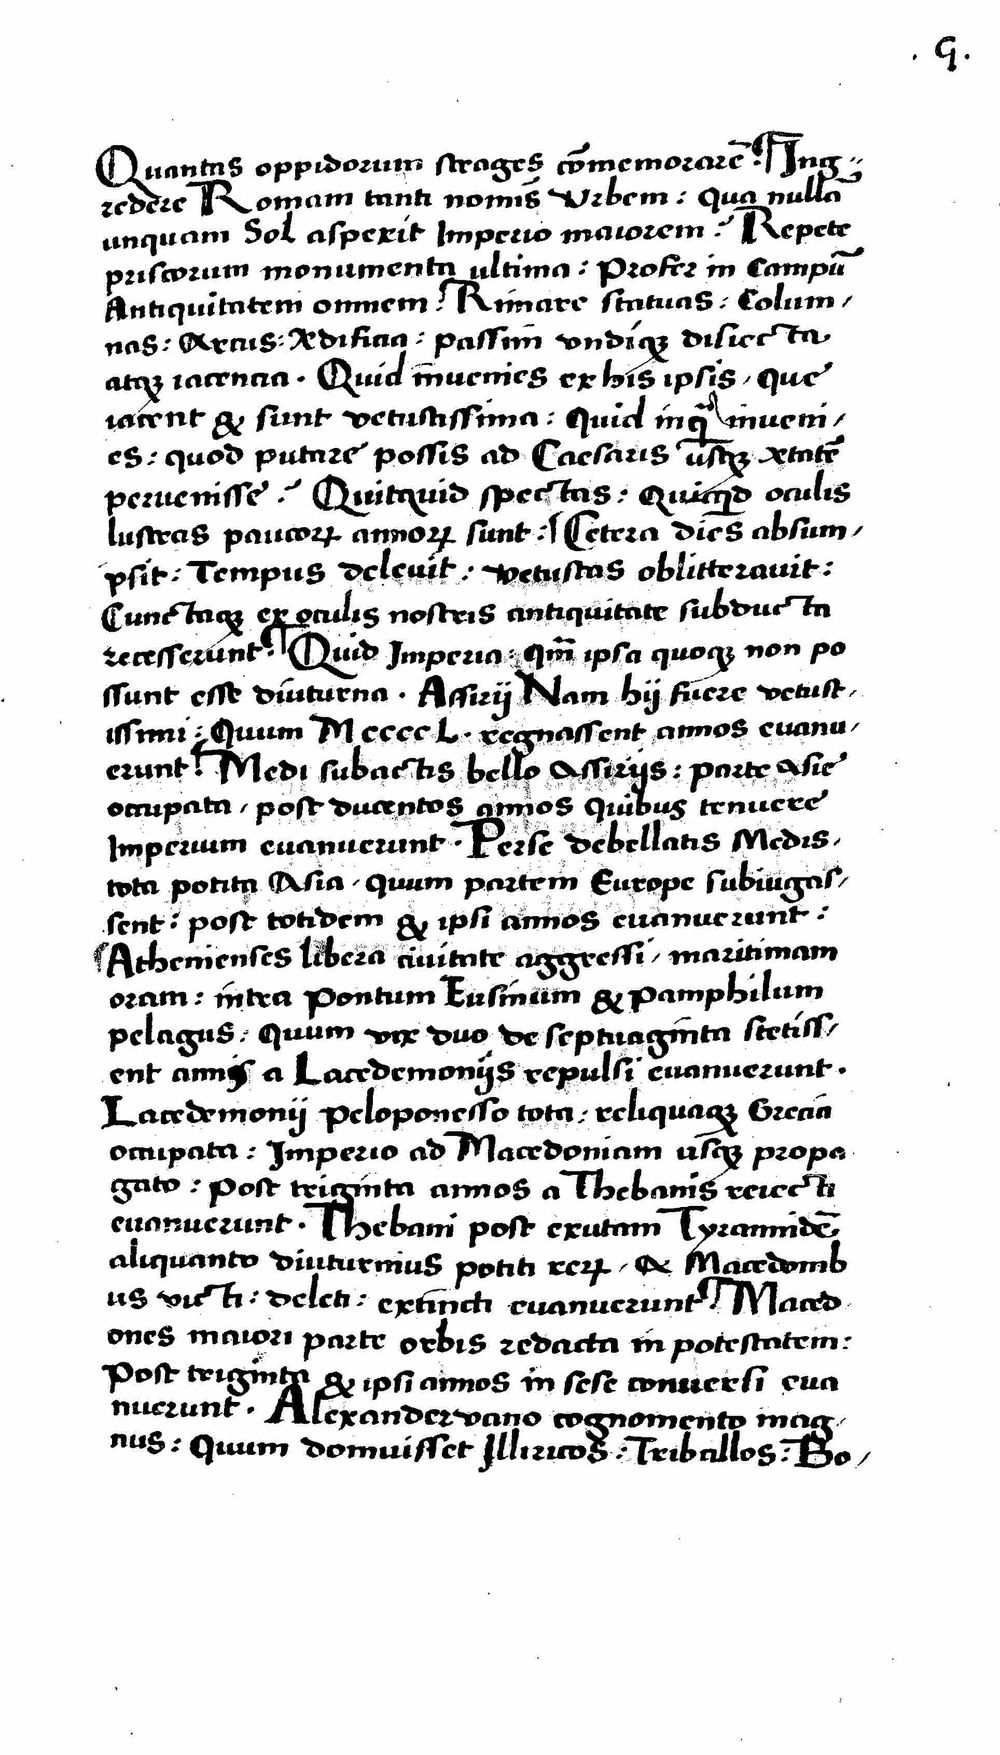 . 9.
Quantas oppidorum strages cõmemorarẽ? Ing-
redere Romam tanti nomĩs Vrbem: Qua nullã
unquam Sol aspexit Imperio maiorem? Repete
priscorum monumenta ultima: Profer in Campũ
Antiquitatem omnem? Rimare statuas: Colum/
nas: Arcus: Ædificia: passim vndiqꝫ disiecta
atqꝫ iacencia. Quid inuenies ex his ipsis, que
iacent & sunt vetustissima: Quid inqᷓ inueni/
es: quod putare possis ad Caesaris usqꝫ ætatẽ
pervenisse? Quitquid spectas: Quicqd oculis
lustras paucoꝝ annoꝝ sunt: Cetera dies absum/
psit: Tempus delevit: vetustas oblitteravit:
Cunctaqꝫ ex oculis nostris antiquitate subducta
recesserunt. Quid Imperia: qm̃ ipsa quoqꝫ non po
ssunt esse diuturna. Assirij Nam hij fuere vetust/
issimi: Quum MccccL. regnassent annos euanu/
erunt. Medi subactis bello Assirijs: parte Asie
occupata, post ducentos annos quibus tenuere
Imperium euanuerunt. Perse debellatis Medis,
tota potita Asia, quum partem Europe subiugas/
sent: post totidem & ipsi annos euanuerunt:
Athenienses libera ciuitate aggressi, maritimam
oram: intra Pontum Eusinum & Pamphilum
pelagus: Quum vix duo de septuaginta stetiss/
ent annis a Lacedemonijs repulsi euanuerunt.
Lacedemonij Peloponesso tota: reliquaqꝫ Grecia
occupata: Imperio ad Macedoniam usqꝫ propa
gato: Post triginta annos a Thebanis reiecti
euanuerunt. Thebani post exutam Tyrannidẽ
aliquanto diuturnius potiti reꝝ, & Macedonib
us victi: deleti: extincti euanuerunt. Maced
ones maiori parte orbis redacta in potestatem:
Post triginta & ipsi annos in sese conuersi eua
nuerunt. Alexander vano cognomento mag/
nus: Quum domuisset Illiricos: Triballos: Bo/